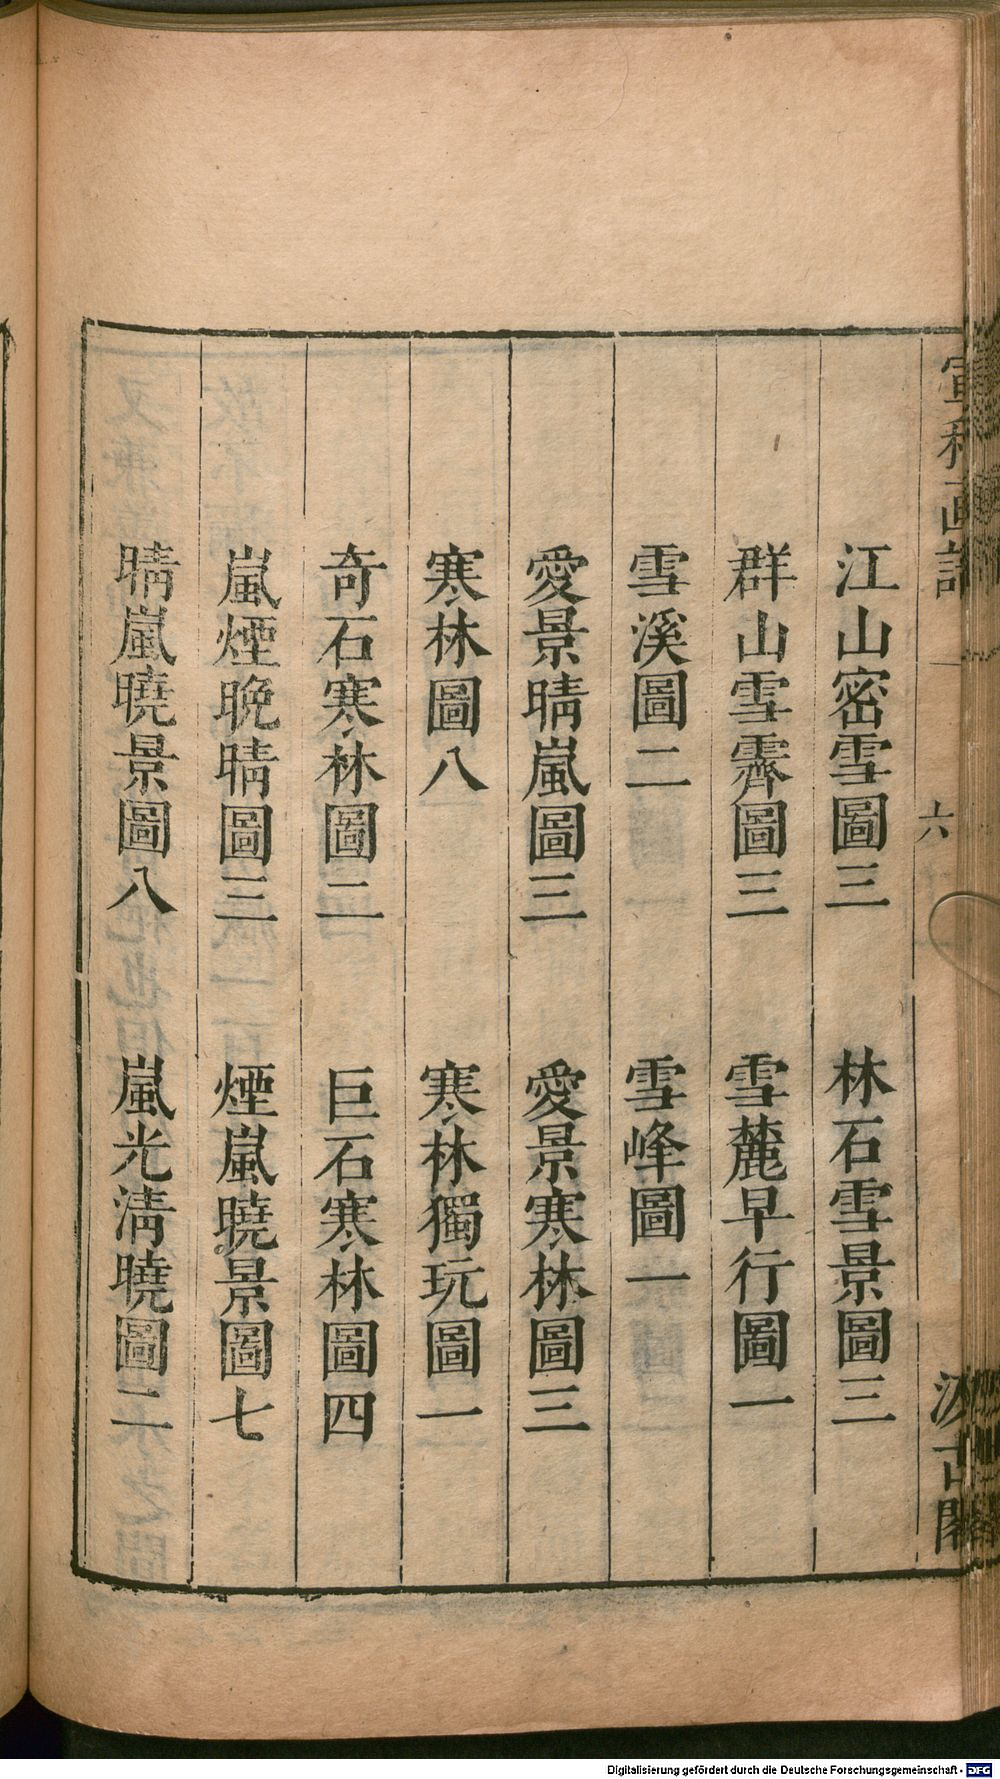 宣和画譜 六 汲古閣
江山密雪圖三 林石雪景圖三
群山雪霽圖三 雪麓早行圖一
雪溪圖二 雪峰圖一
愛景晴嵐圖三 愛景寒林圖三
寒林圖八 寒林獨玩圖一
奇石寒林圖二 巨石寒林圖四
嵐煙晚晴圖三 煙嵐曉景圖七
晴嵐曉景圖八 嵐光清曉圖二
Digitalisierung gefördert durch die Deutsche Forschungsgemeinschaft - DFG